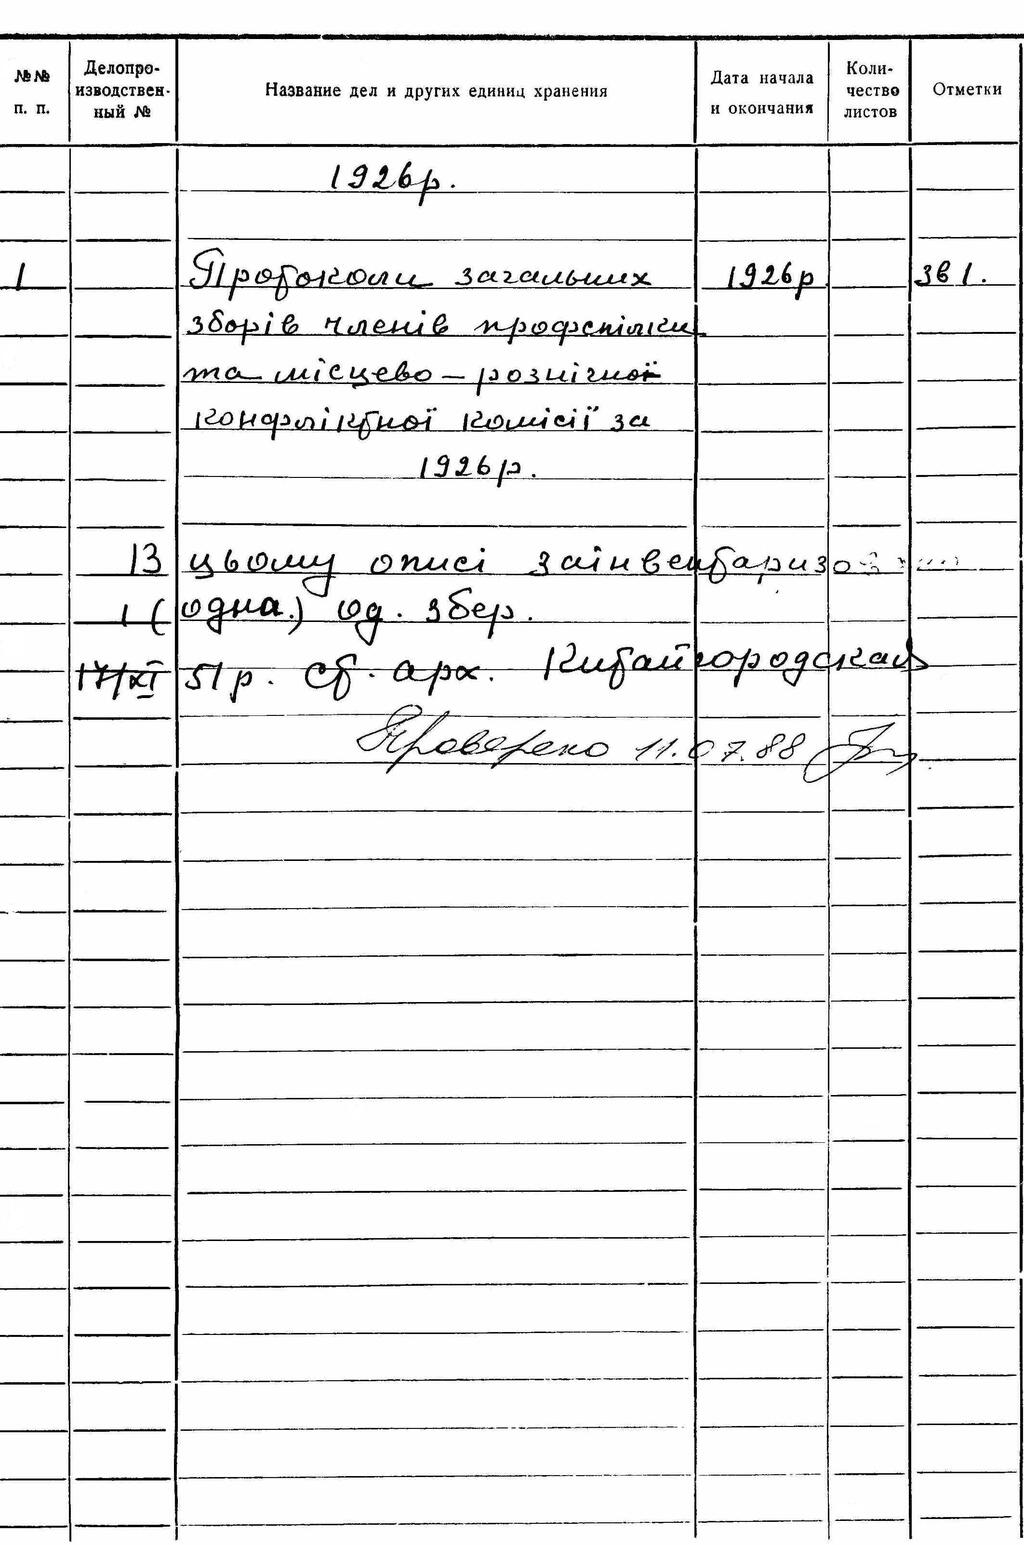 №№ п. п. Делопроизводственный № Название дел и других единиц хранения Дата начала и окончания Количество листов Отметки
1926р.
1 Протоколи загальних 1926р зв 1.
зборів членів профспілки
та місцево – рознічної
конфліктної комісії за
1926р.
13 цьому описі
1 (одна.) од. збер.
17/XI 51р. ст. арх. Китайгородская
Проверено 11.07.88